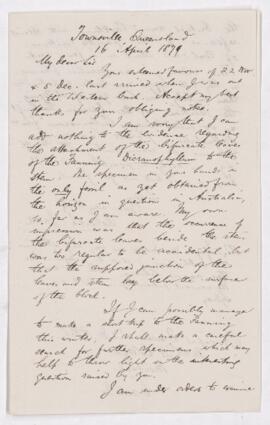 Townsville Queensland
16 April 1879
My Dear Sir
Your esteemed favours of 22 Nov
& 5 Dec. last arrived when I was out
in the Western land. Accept my best
thanks for your obliging notes.
I am sorry that I can
add nothing to the evidence regarding
the attachment of the bifurcate leaves
of the Fanning Dicranophyllum to the
Stem. The specimen in your hands is
the only fossil as yet obtained from
the horizon in question in Australia,
so far as I am aware. My own
impression was that the occurrence of
the bifurcate leaves beside the stem
was too regular to be accidental, but
that the supposed junction of the
leaves and stem lay below the surface
of the block.
If I can possibly manage
to make a short trip to the Fanning
this winter, I shall make a careful
search for further specimens which may
help to throw light on the interesting
question raised by you.
I am under orders to